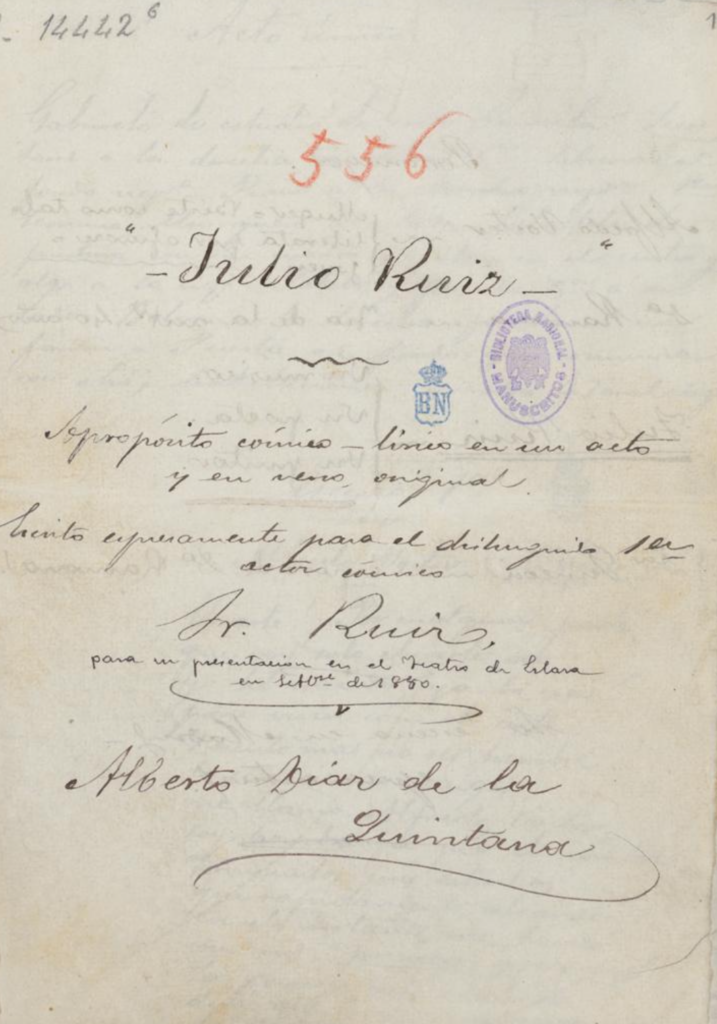 14442⁶
1
556
"- Julio Ruiz -"
BIBLIOTECA NACIONAL
MANUSCRITOS
BN
Apropósito cómico-lírico en un acto
y en verso, original.
Escrito expresamente para el distinguido 1er
actor cómico
Sr. Ruiz,
para su presentacion en el Teatro de Eslava
en Setbre de 1880.
Alberto Díaz de la
Quintana